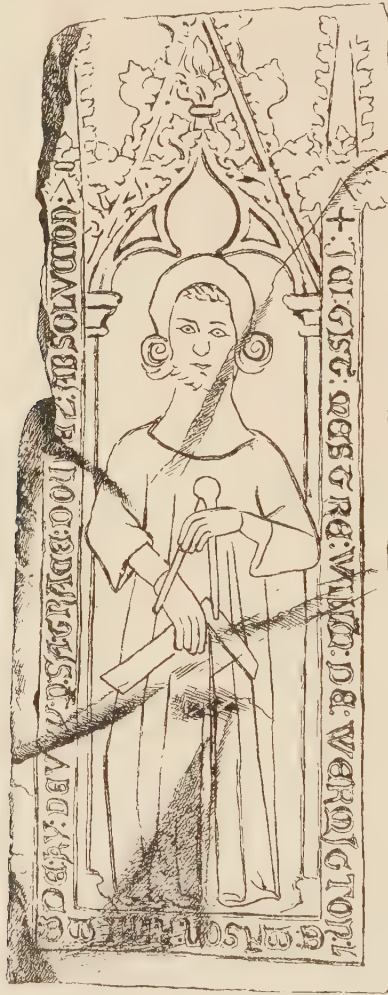 + : ICI : GIST : MESTRE : WILLM : DE : WERMIGTON : L
E : MASON :
DE KY : DEV P SA GRACE : DOU EZ ABSOLVCION :